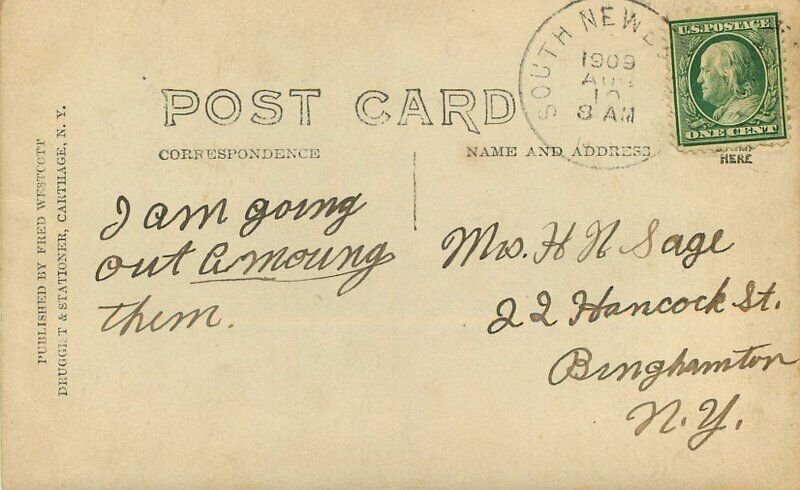 SOUTH NEWB
1909
AUG
10
8 AM
U.S. POSTAGE
ONE CENT
HERE
POST CARD
CORRESPONDENCE
NAME AND ADDRESS
I am going
out amoung
them.
Mrs. H N Sage
22 Hancock St.
Binghamton
N.Y.
PUBLISHED BY FRED WESTCOTT
DRUGGIST & STATIONER, CARTHAGE, N. Y.